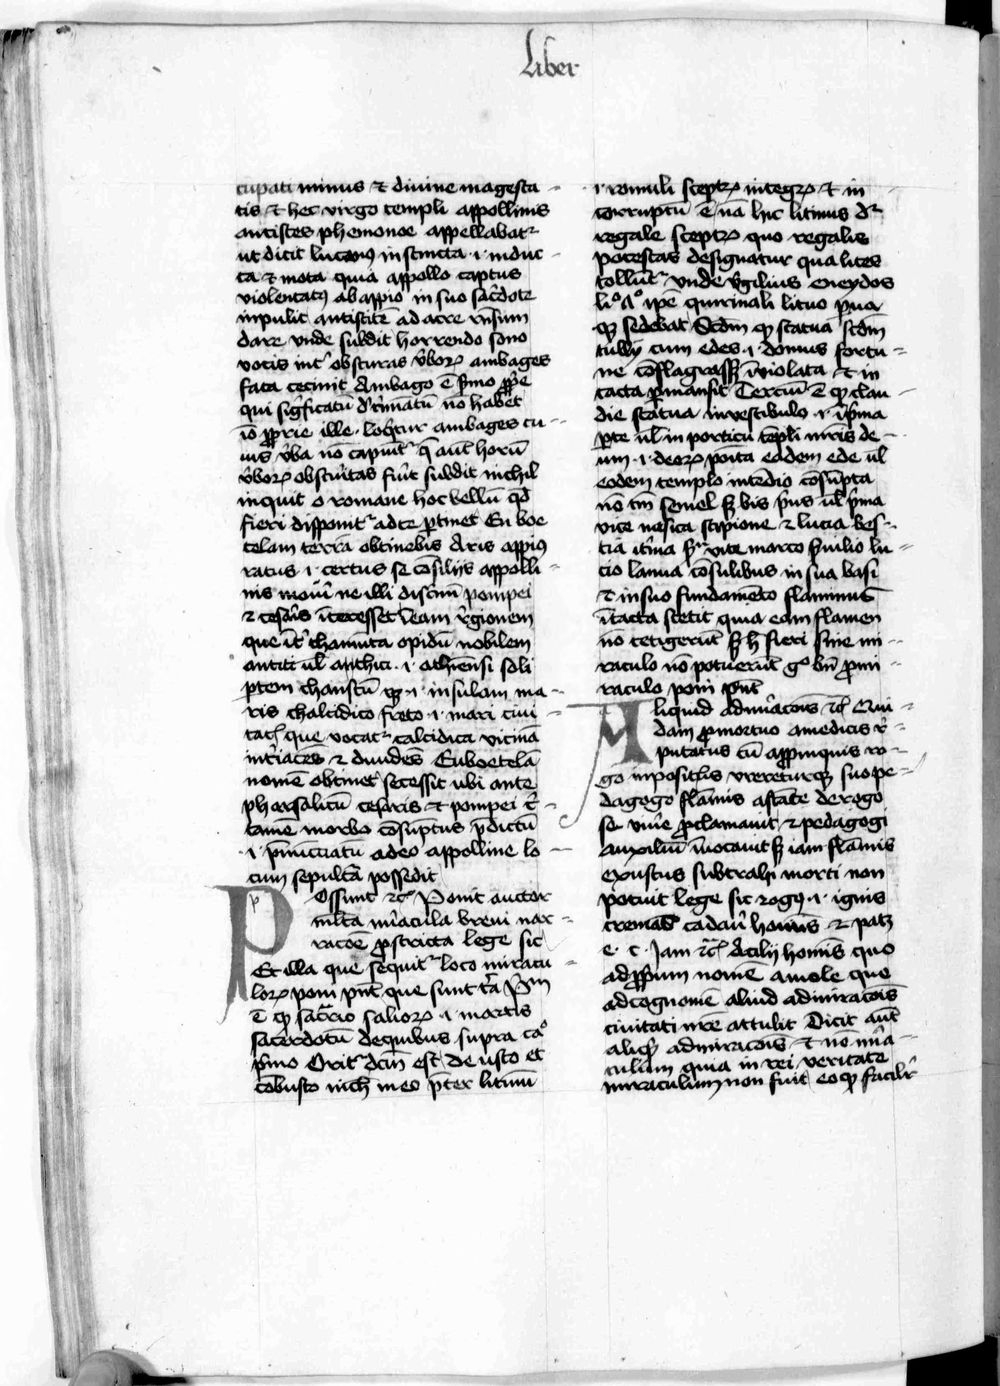 Liber
cupati minus et divine magesta-
tis et hec virgo templi appollinis
antistes phemonoe appellabatr
ut dicit lucanus instincta .i. induc-
ta et mota quia appollo captus
violentatus ab appio in suo sacerdote
inpulit antistitem ad acre responsum
dare unde subdit horrendo sono
vocis inter obscuras verborum ambages
fata cecinit Ambago est sermo
qui significatum determinatum non habet
ideo proprie ille loquitur ambages cu-
ius verba non capiuntur que autem horum
verborum obscuritas fuerit subdit nichil
inquit o romane hoc bellum quod
fieri disponitur ad te pertinet Eu boe
telam terram obtinebis Aris appius
ratus .i. certus se consiliis appolli-
nis moveri ne illi discrimini pompei
et cesaris interesset in eam regionem
que inter opidum nobilem
antiti vel anthici .i. atheniensi soli
partem charistum que .i. insulam ma-
ris chalcidico freto .i. mari civi-
tatis que vocatur calcidica vicinam
interiacens et dividens Euboetelam
nomen obtinet secessit ubi ante
pharsalicum cesaris et pompei cer-
tamen morbo consumptus predictum
.i. prenuncciatum a deo appolline lo-
cum sepultam possedit
Possunt etc Ponit auctor
multa miracula brevi nar-
racione prostricta lege sic
Et illa que sequitur loco miracu-
lorum poni possunt que sunt tria Primum
est quod sacrario saliorum .i. martis
sacerdotum de quibus supra capitulo
primo Oritur dictum est, de usto et
combusto nichil in eo preter lituum
.i. romuli sceptrum integrum et in
corruptum est nam hic lituus dicitur
regale sceptrum quo regalis
potestas designatur qua lites
tolluntur unde virgilius eneydos
libro ipse quirinali lituo parva
que sedebat Secundum quod statua secundum
tullii cum edes .i. domus fortu-
ne conflagrasset inviolata et in
tacta permansit Tercium est quod clau-
die statua in vestibulo .i. in prima
parte vel in porticu templi matris de-
um .i. deorum posita eadem ede vel
eodem templo incendio consumpta
non tantum semel sed bis prius vel prima
vice nasica scipione et lucia bes-
tia iterum secunda vice marco servilio lu-
cio lamia consulibus in sua basi
et in suo fundamento flaminius
intacta stetit quia eam flamen
non tetigerunt sed hoc fieri sine mi-
raculo non potuerunt ergo bene pro mi-
raculo poni possunt
Aliquid admiracionis etc Qui-
dam pro mortuo a medicis re-
putatus cum a propinquis ro-
go impositus ureretur que suo pe-
dagogo flammis astante de rogo
se vivere proclamavit et pedagogi
auxilium invocavit sed iam flammis
exustus subtrahi morti non
potuit lege sic rogus .i. ignis
cremans cadaver hominis et patet
e. c. Jam etc Acilii hominis quo
ad proprium nomen aviole quo
ad cognomen aliud admiracionis
civitati nostre attulit Dicit autem
aliquid admiracionis et non mira-
culum quia in rei veritate
miraculum non fuit eo quod faciliter